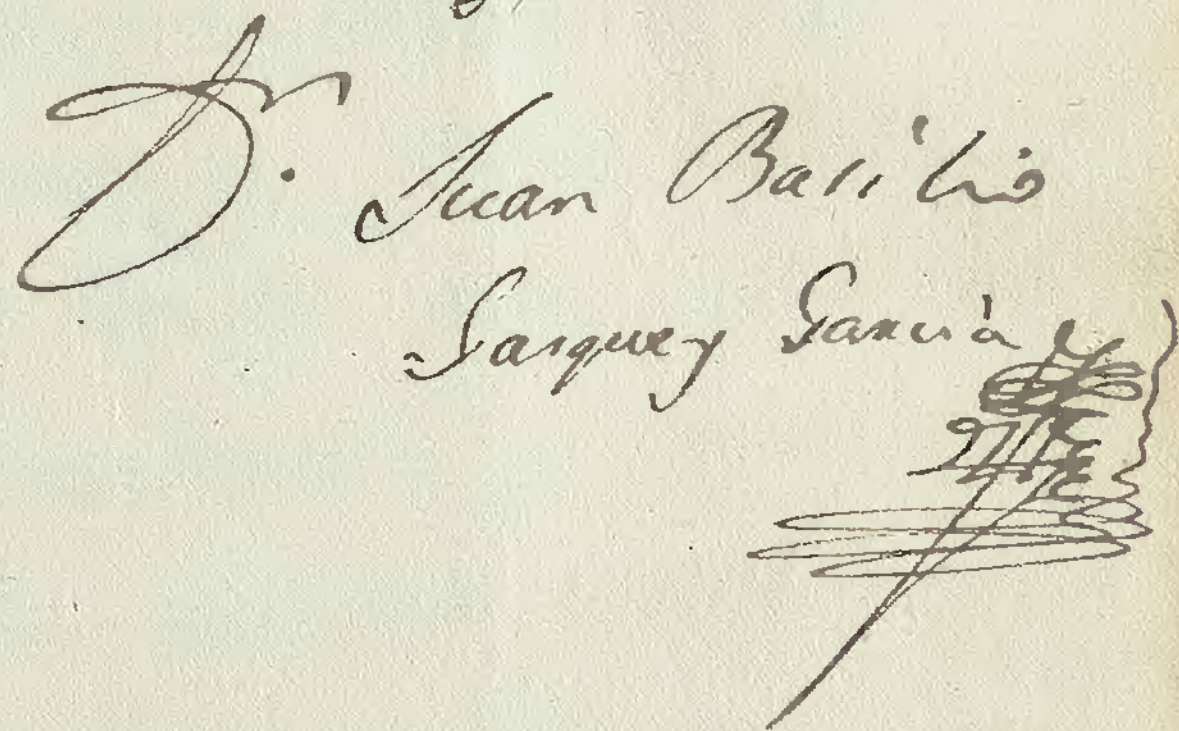 Dr. Juan Basilio
Jarque y García